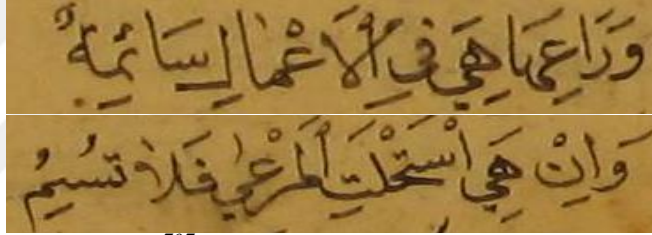 وَرَاعِهَا هِيَ فِي الْاَعْمَالِ سَائِمَةٌ
وَاِنْ هِيَ اسْتَحْلَتِ الْمَرْعٰى فَلَا تُسِيمُ